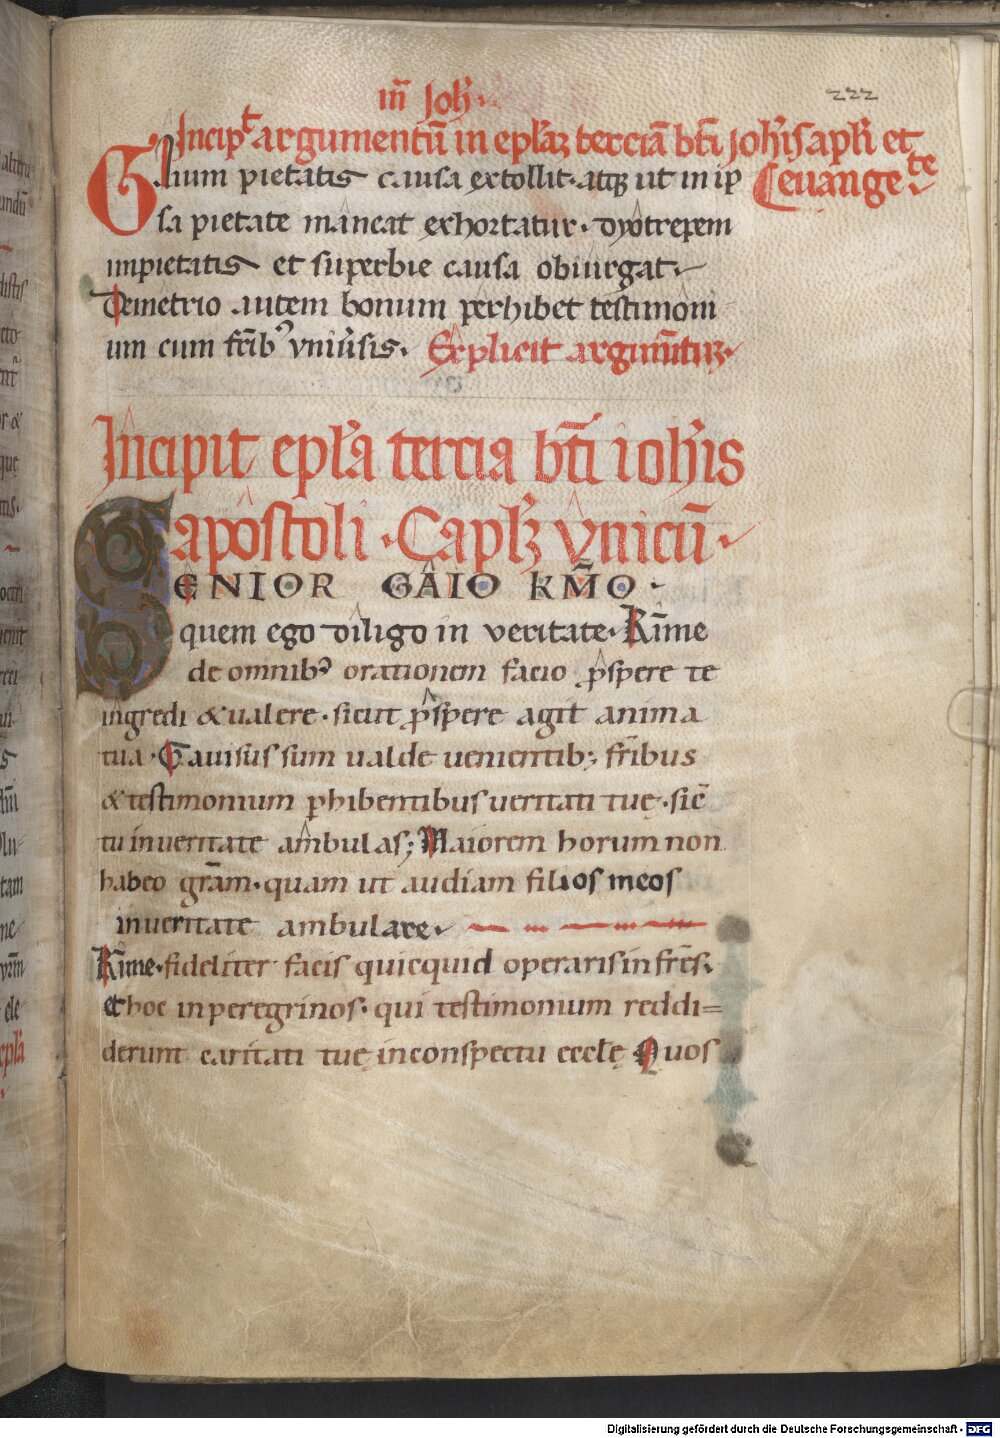 iii Joh̄.
222
Incipt argumentū in epl̄aʒ terciā bt̄i joh̄is apl̄i et
Gaium pietatis causa extollit. atqʒ ut in ip
euange te
sa pietate maneat exhortatur. dyotrepem
impietatis et superbie causa obiurgat.
Demetrio autem bonum perhibet testimoni
um cum fr̄ibꝰ vniu̓sis. Explicit argum̄tuʒ.
Incipit epl̄a tercia bt̄i ioh̄is
apostoli. Capl̄ʒ vnicū.
SENIOR GAIO KM̄O.
quem ego diligo in veritate. Km̄e
de omnibꝰ orationem facio ꝓspere te
ingredi & ualere. sicut ꝓspere agit anima
tua. Gauisus sum ualde uenientib; fr̄ibus
& testimonium ꝑhibentibus ueritati tuę. sic̄
tu in ueritate ambulas; Maiorem horum non
habeo grām. quam ut audiam filios meos
in ueritate ambulare.
Km̄e. fideliter facis quicquid operaris in fr̄es.
et hoc in peregrinos. qui testimonium reddi=
derunt caritati tuę in conspectu eccl̄ę Quos
Digitalisierung gefördert durch die Deutsche Forschungsgemeinschaft - DFG